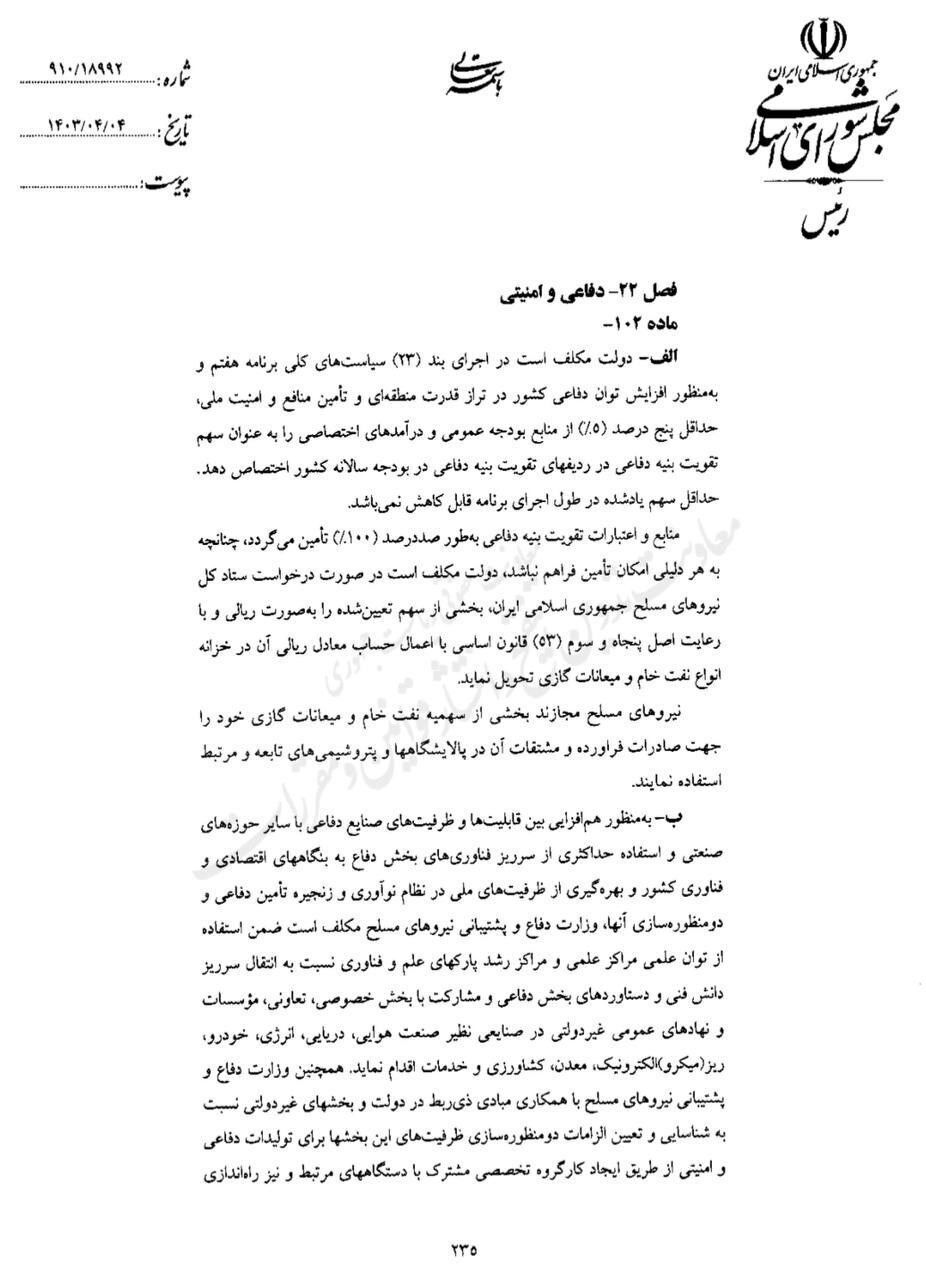 جمهوری اسلامی ایران
مجلس شورای اسلامی
رئیس
باسمه تعالی
شماره: ۹۱۰/۱۸۹۹۲
تاریخ: ۱۴۰۳/۰۴/۰۴
پیوست:
فصل ۲۲- دفاعی و امنیتی
ماده ۱۰۲-
الف- دولت مکلف است در اجرای بند (۲۳) سیاست‌های کلی برنامه هفتم و
به‌منظور افزایش توان دفاعی کشور در تراز قدرت منطقه‌ای و تأمین منافع و امنیت ملی،
حداقل پنج درصد (۵٪) از منابع بودجه عمومی و درآمدهای اختصاصی را به عنوان سهم
تقویت بنیه دفاعی در ردیفهای تقویت بنیه دفاعی در بودجه سالانه کشور اختصاص دهد.
حداقل سهم یادشده در طول اجرای برنامه قابل کاهش نمی‌باشد.
منابع و اعتبارات تقویت بنیه دفاعی به‌طور صددرصد (۱۰۰٪) تأمین می‌گردد، چنانچه
به هر دلیلی امکان تأمین فراهم نباشد، دولت مکلف است در صورت درخواست ستاد کل
نیروهای مسلح جمهوری اسلامی ایران، بخشی از سهم تعیین‌شده را به‌صورت ریالی و با
رعایت اصل پنجاه و سوم (۵۳) قانون اساسی با اعمال حساب معادل ریالی آن در خزانه
انواع نفت خام و میعانات گازی تحویل نماید.
نیروهای مسلح مجازند بخشی از سهمیه نفت خام و میعانات گازی خود را
جهت صادرات فراورده و مشتقات آن در پالایشگاهها و پتروشیمی‌های تابعه و مرتبط
استفاده نمایند.
ب- به‌منظور هم‌افزایی بین قابلیت‌ها و ظرفیت‌های صنایع دفاعی با سایر حوزه‌های
صنعتی و استفاده حداکثری از سرریز فناوری‌های بخش دفاع به بنگاههای اقتصادی و
فناوری کشور و بهره‌گیری از ظرفیت‌های ملی در نظام نوآوری و زنجیره تأمین دفاعی و
دومنظوره‌سازی آنها، وزارت دفاع و پشتیبانی نیروهای مسلح مکلف است ضمن استفاده
از توان علمی مراکز علمی و مراکز رشد پارکهای علم و فناوری نسبت به انتقال سرریز
دانش فنی و دستاوردهای بخش دفاعی و مشارکت با بخش خصوصی، تعاونی، مؤسسات
و نهادهای عمومی غیردولتی در صنایعی نظیر صنعت هوایی، دریایی، انرژی، خودرو،
ریز(میکرو)الکترونیک، معدن، کشاورزی و خدمات اقدام نماید. همچنین وزارت دفاع و
پشتیبانی نیروهای مسلح با همکاری مبادی ذی‌ربط در دولت و بخشهای غیردولتی نسبت
به شناسایی و تعیین الزامات دومنظوره‌سازی ظرفیت‌های این بخشها برای تولیدات دفاعی
و امنیتی از طریق ایجاد کارگروه تخصصی مشترک با دستگاههای مرتبط و نیز راه‌اندازی
۲۳۵